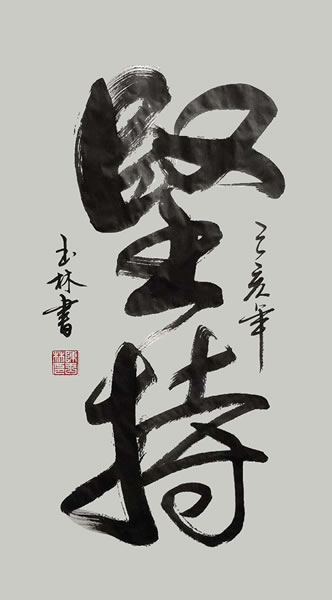 己亥年
堅持
玉林書